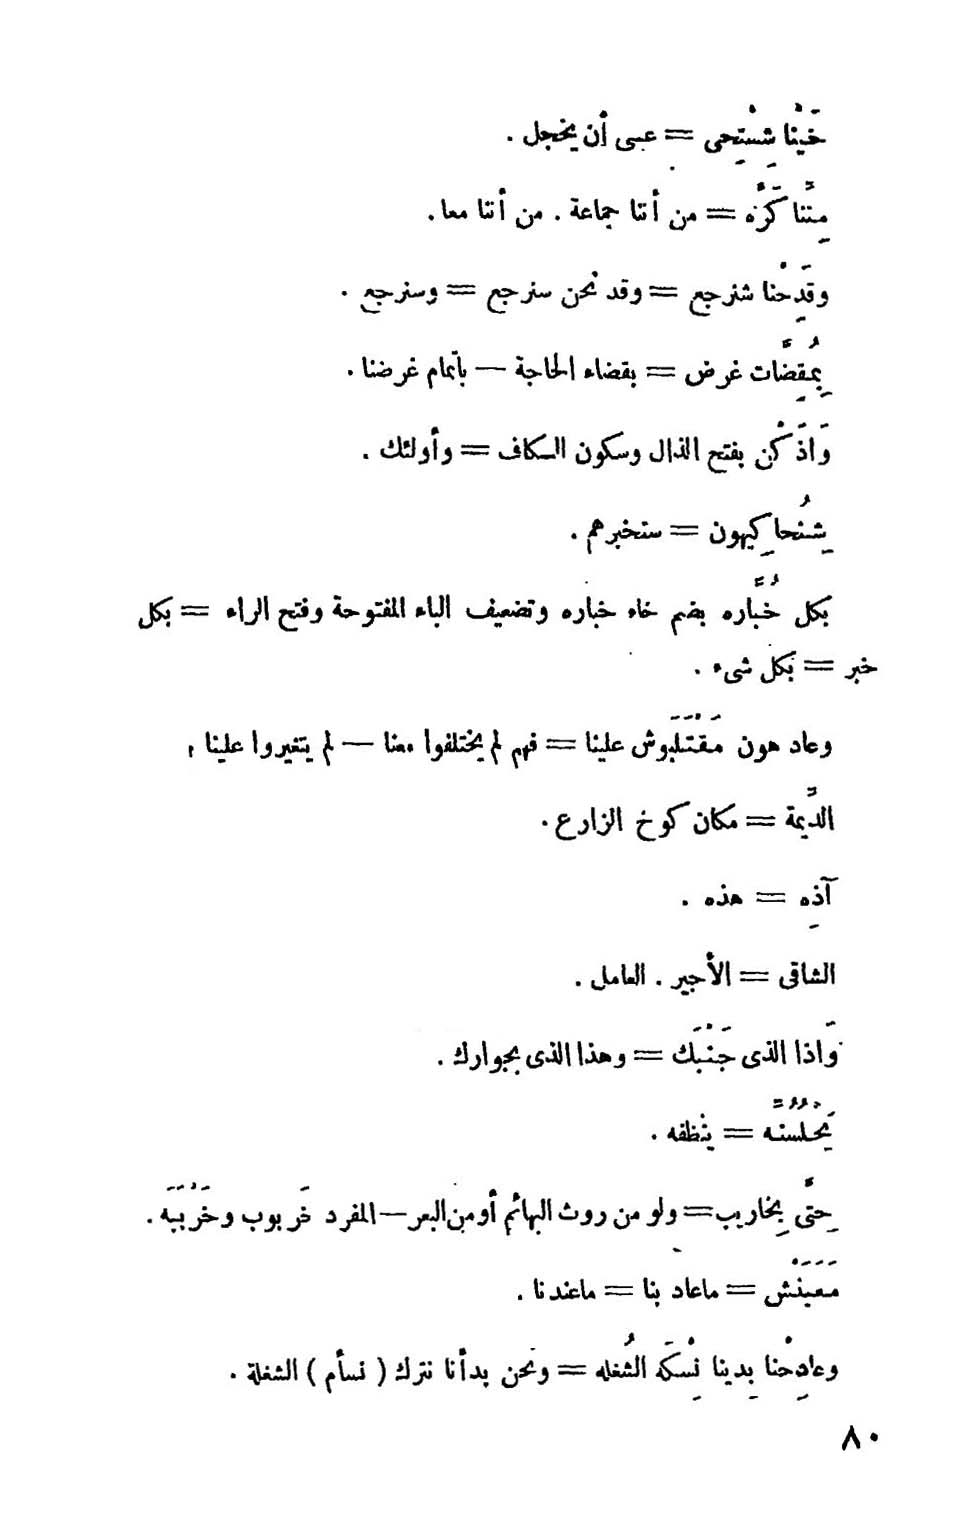 خَيْنا شِسْتِحى = عسى أن يخجل .
مِتّنا كَزّه = من أنتا جماعة . من أنتا معا .
وقَدِحْنا شنرجع = وقد نحن سنرجع = وسنرجع .
بِمُقِضّات غرض = بقضاء الحاجة — بأتمام غرضنا .
وَاذَكْن بفتح الذال وسكون الكاف = وأولئك .
شِنُحاكِيهون = ستخبرهم .
بكل خُبَّاره بضم خاء خباره وتضعيف الباء المفتوحة وفتح الراء = بكل
خبر = بكل شىء .
وعاد هون مَقْتَلَبوش علينا = فهم لم يختلفوا معنا — لم يتغيروا علينا ,
الدَّيمة = مكان كوخ الزارع .
آذِه = هذه .
الشاقى = الأجير . العامل .
وَاذا الذى جَنْبَك = وهذا الذى بجوارك .
يَحْلُسُنّه = ينظفه .
حِتَّى بِخاريب = ولو من روث البهائم أو من البعر — المفرد خَربوب وخَرْبَبَه .
مَعَبَنْش = ماعاد بنا = ماعندنا .
وعادِحْنا بِدينا نِسْكَه الشُغله = ونحن بدأنا نترك ( نسأم ) الشغلة .
٨٠